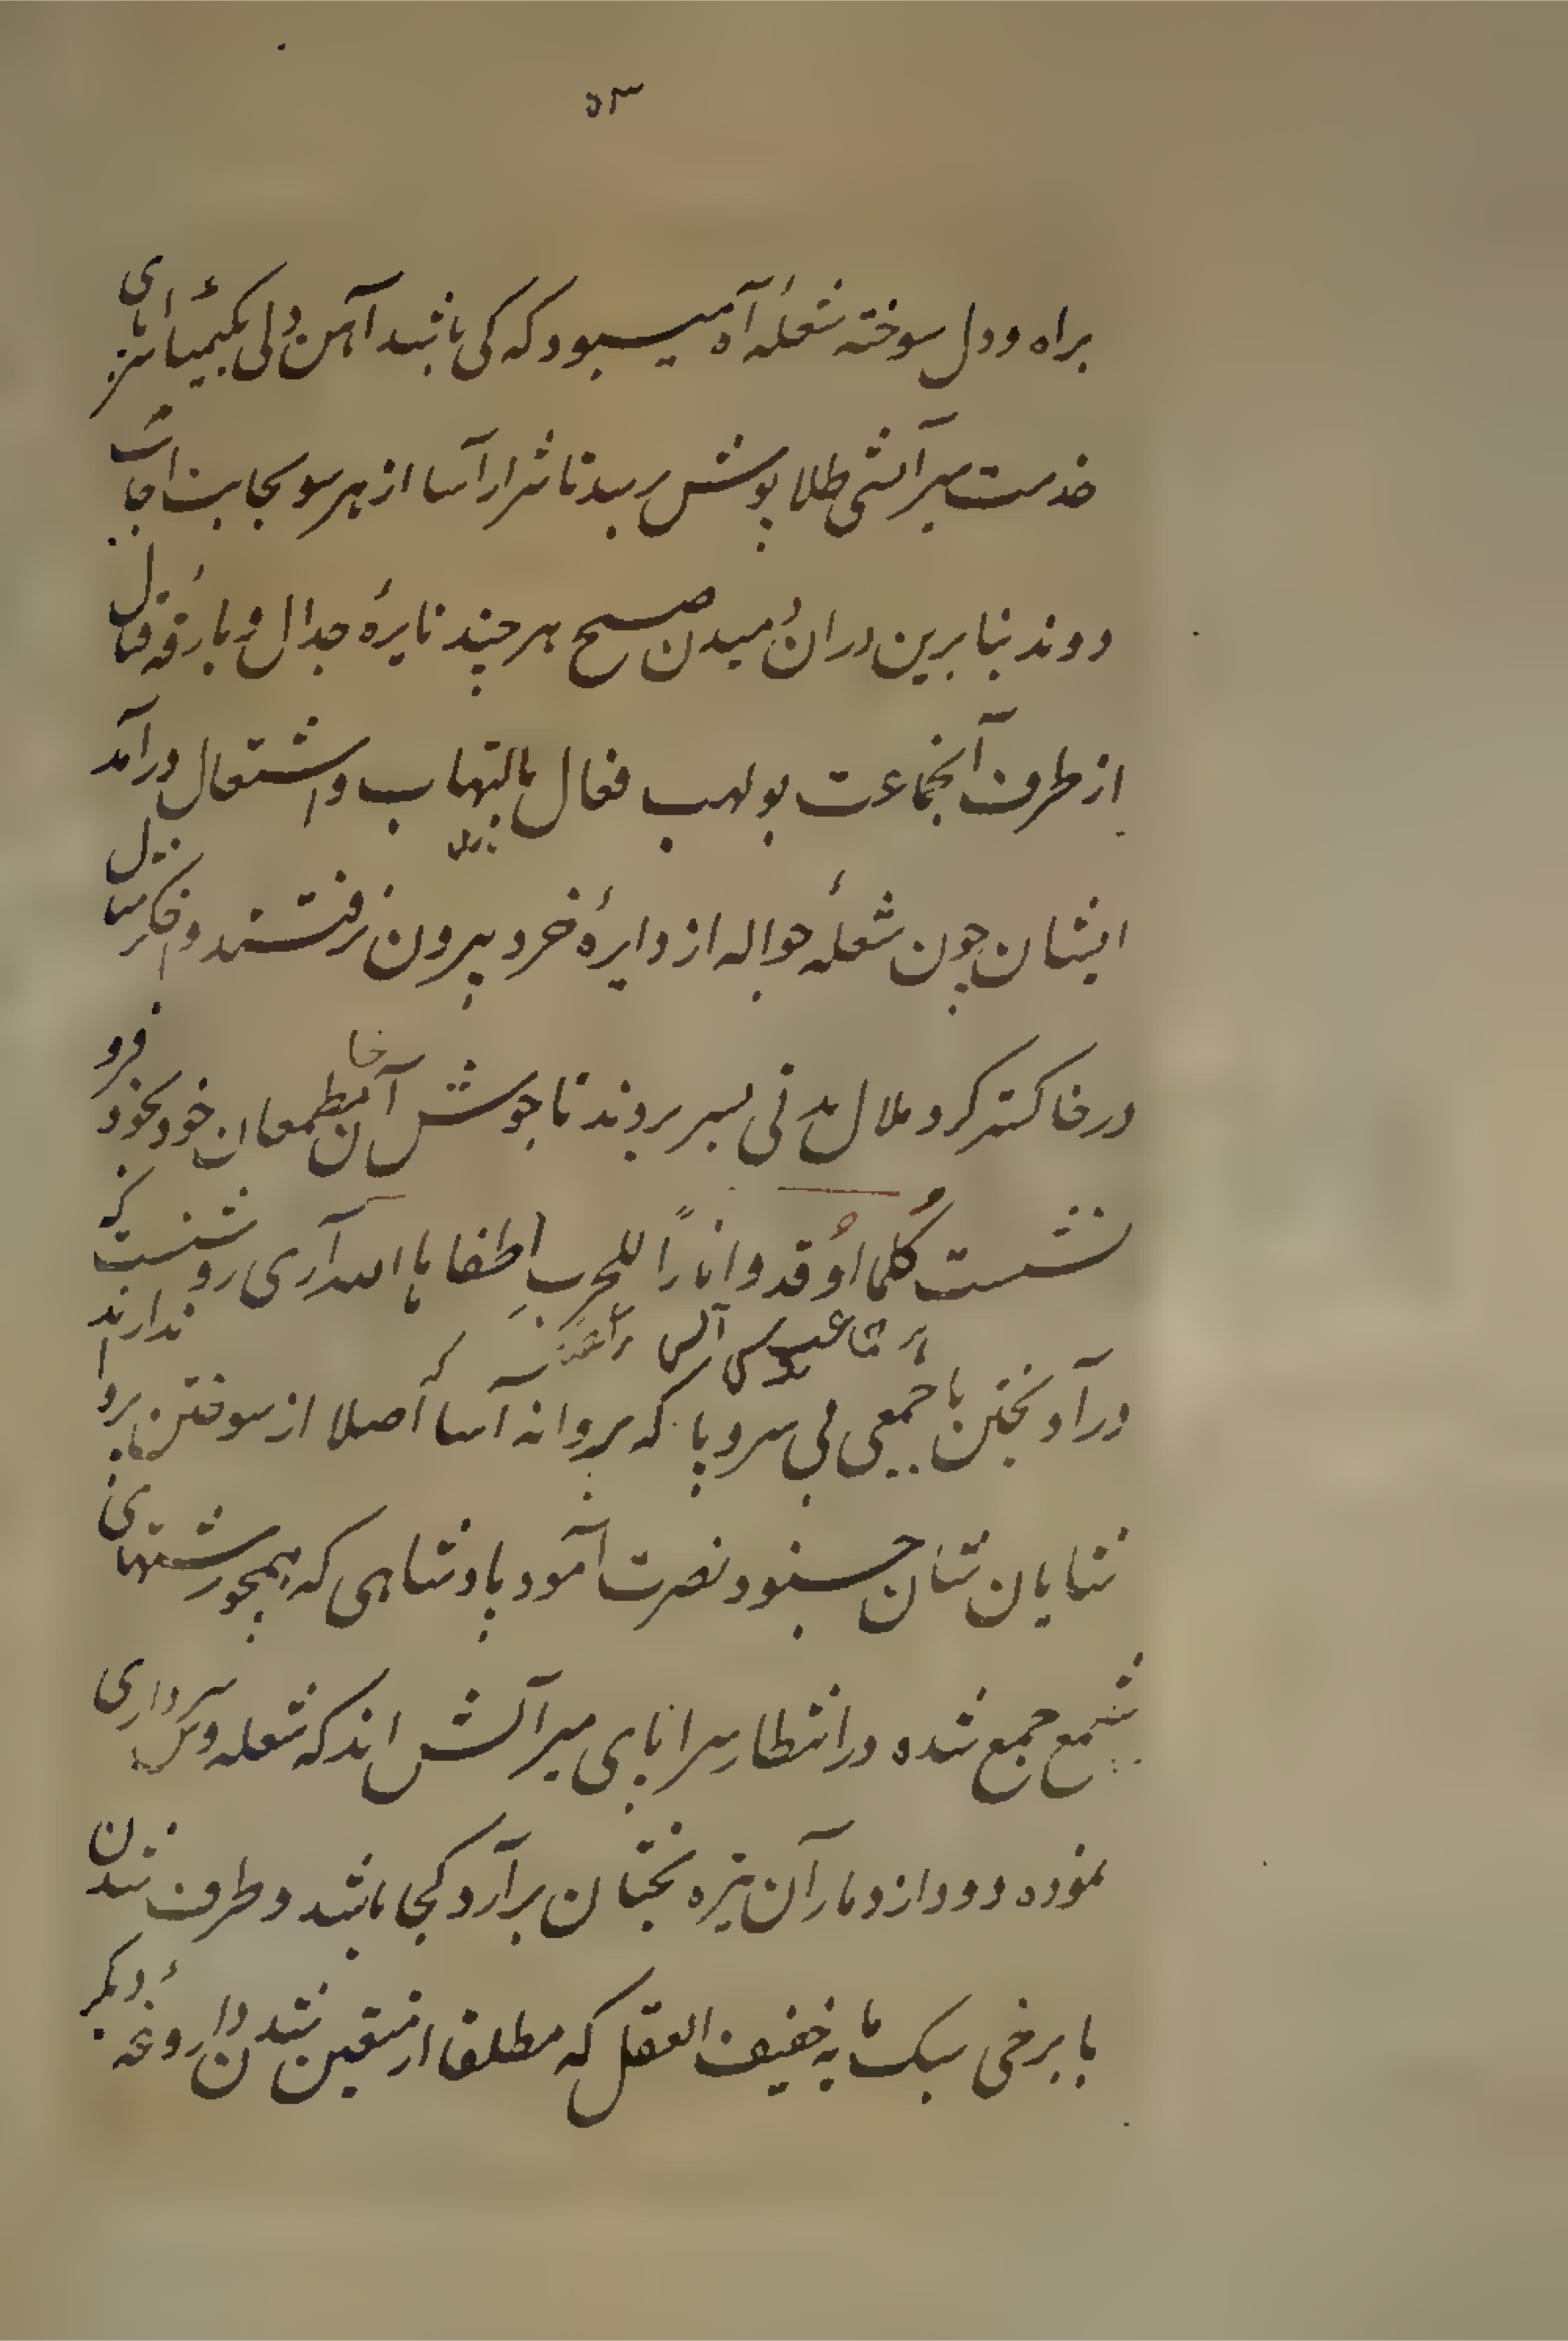 ۵۳
براه و دل سوخته شعلهٔ آه میسبود که کی باشد آهن دلی بکیمیای
خدمت میر آتشی طلا پوش رسد تا شرار آسا از هر سو بجانب
دوند بنا برین دران میدن صبح هر چند نایرهٔ جدال و بارقهٔ قتال
از طرف آنجماعت بولهب فعال بالتهاب و اشتعال درآمد
ایشان چون شعلهٔ جواله از دایرهٔ خرد بیرون نرفتند و
در خاکستر کرد ملال مدتی بسر بردند تا جوش آن خامطمعان خود بخود فرو
نشست كُلما اوقدوا نارًا للحربِ اطفاها الله آری روشنست که
در آویختن با جمعی بی سر و پا که پروانه آسا اصلا از سوختن پروا ندارند
شایان شان جنود نصرت آمود پادشاهی که همچو رشتهای
شمع جمع شده در انتظار سراپای میر آتش اند که شعله وش سرداری
نموده دود از دمار آن تیره بختان برآرد کجا باشد و طرف شدن
با برخی سبک مایه خفیف العقل که مطلقا از متعین شدن داروغهٔ دیگر